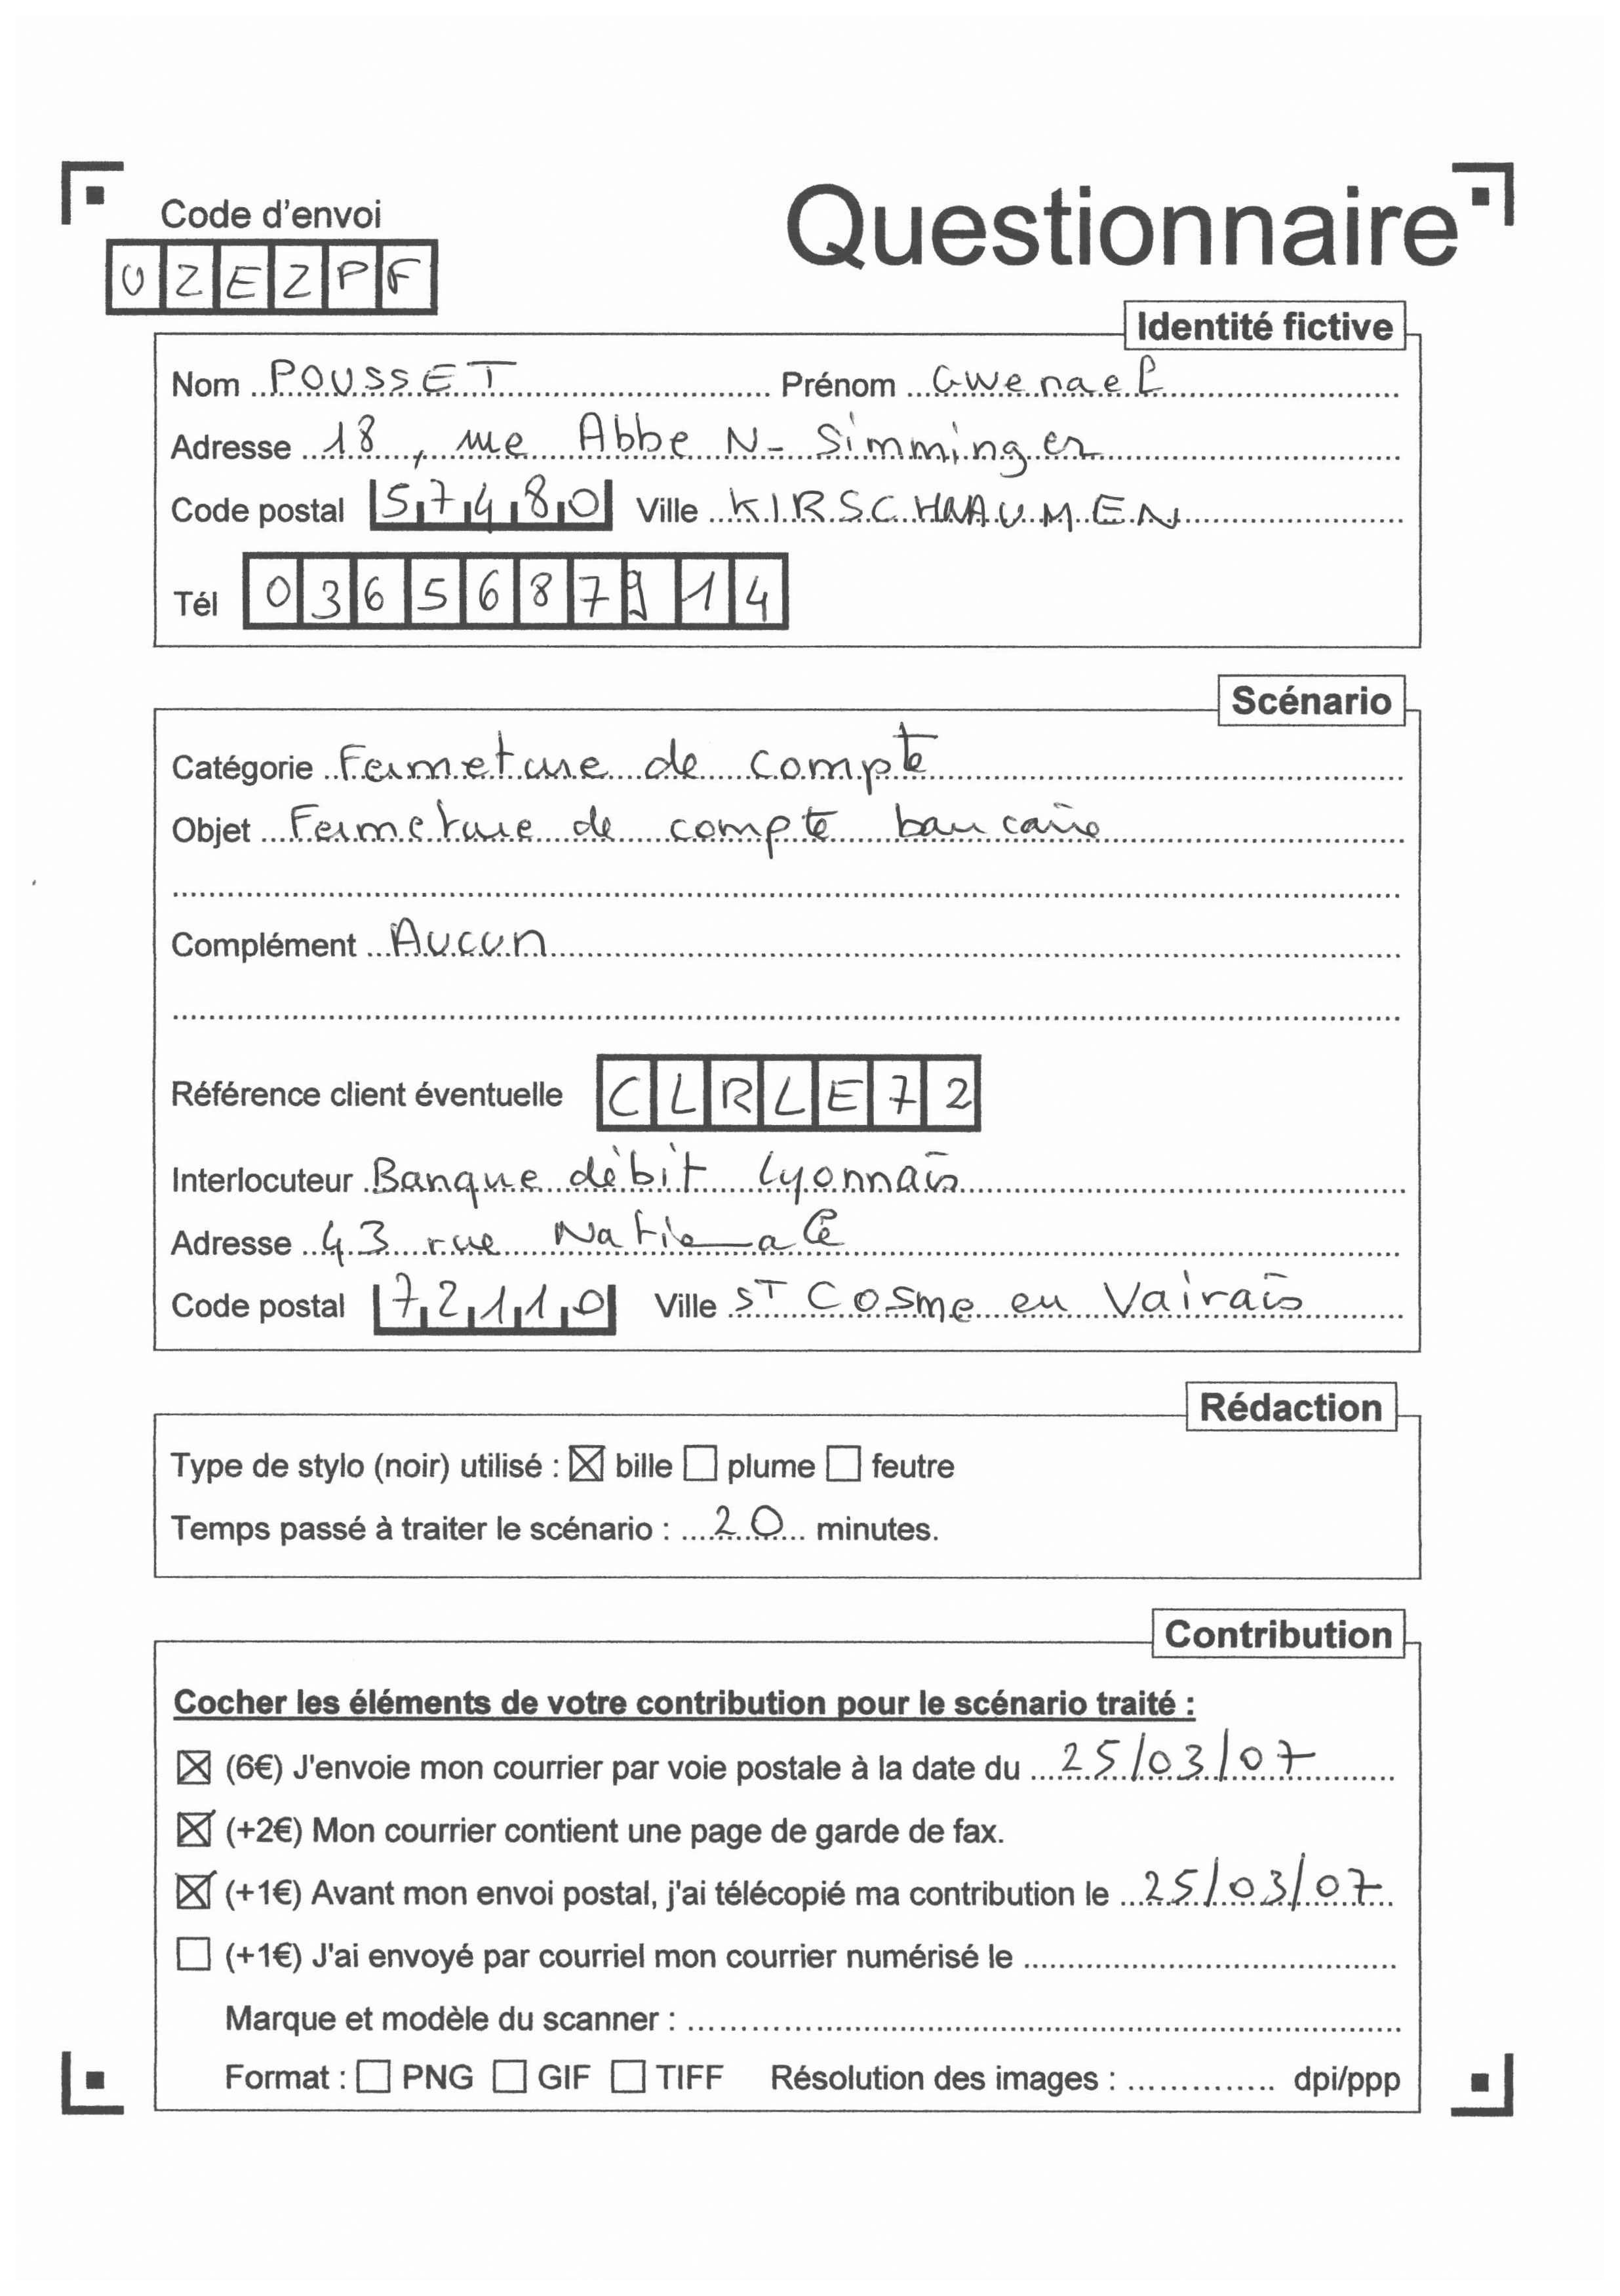 Questionnaire
Code d'envoi
UZEZPF
Identité fictive
Nom POUSSET Prénom Gwenael
Adresse 18, rue Abbe N- Simminger
Code postal 57480 Ville KIRSCHNAUMEN
Tél 0365687914
Scénario
Catégorie Fermeture de compte
Objet Fermeture de compte bancaire
Complément Aucun
Référence client éventuelle CLRLE72
Interlocuteur Banque débit Lyonnais
Adresse 43 rue Nationale
Code postal 72110 Ville ST Cosme en Vairais
Rédaction
Type de stylo (noir) utilisé : ☒ bille ☐ plume ☐ feutre
Temps passé à traiter le scénario : 20 minutes.
Contribution
Cocher les éléments de votre contribution pour le scénario traité :
☒ (6€) J'envoie mon courrier par voie postale à la date du 25/03/07
☒ (+2€) Mon courrier contient une page de garde de fax.
☒ (+1€) Avant mon envoi postal, j'ai télécopié ma contribution le 25/03/07
☐ (+1€) J'ai envoyé par courriel mon courrier numérisé le
Marque et modèle du scanner :
Format : ☐ PNG ☐ GIF ☐ TIFF Résolution des images : dpi/ppp